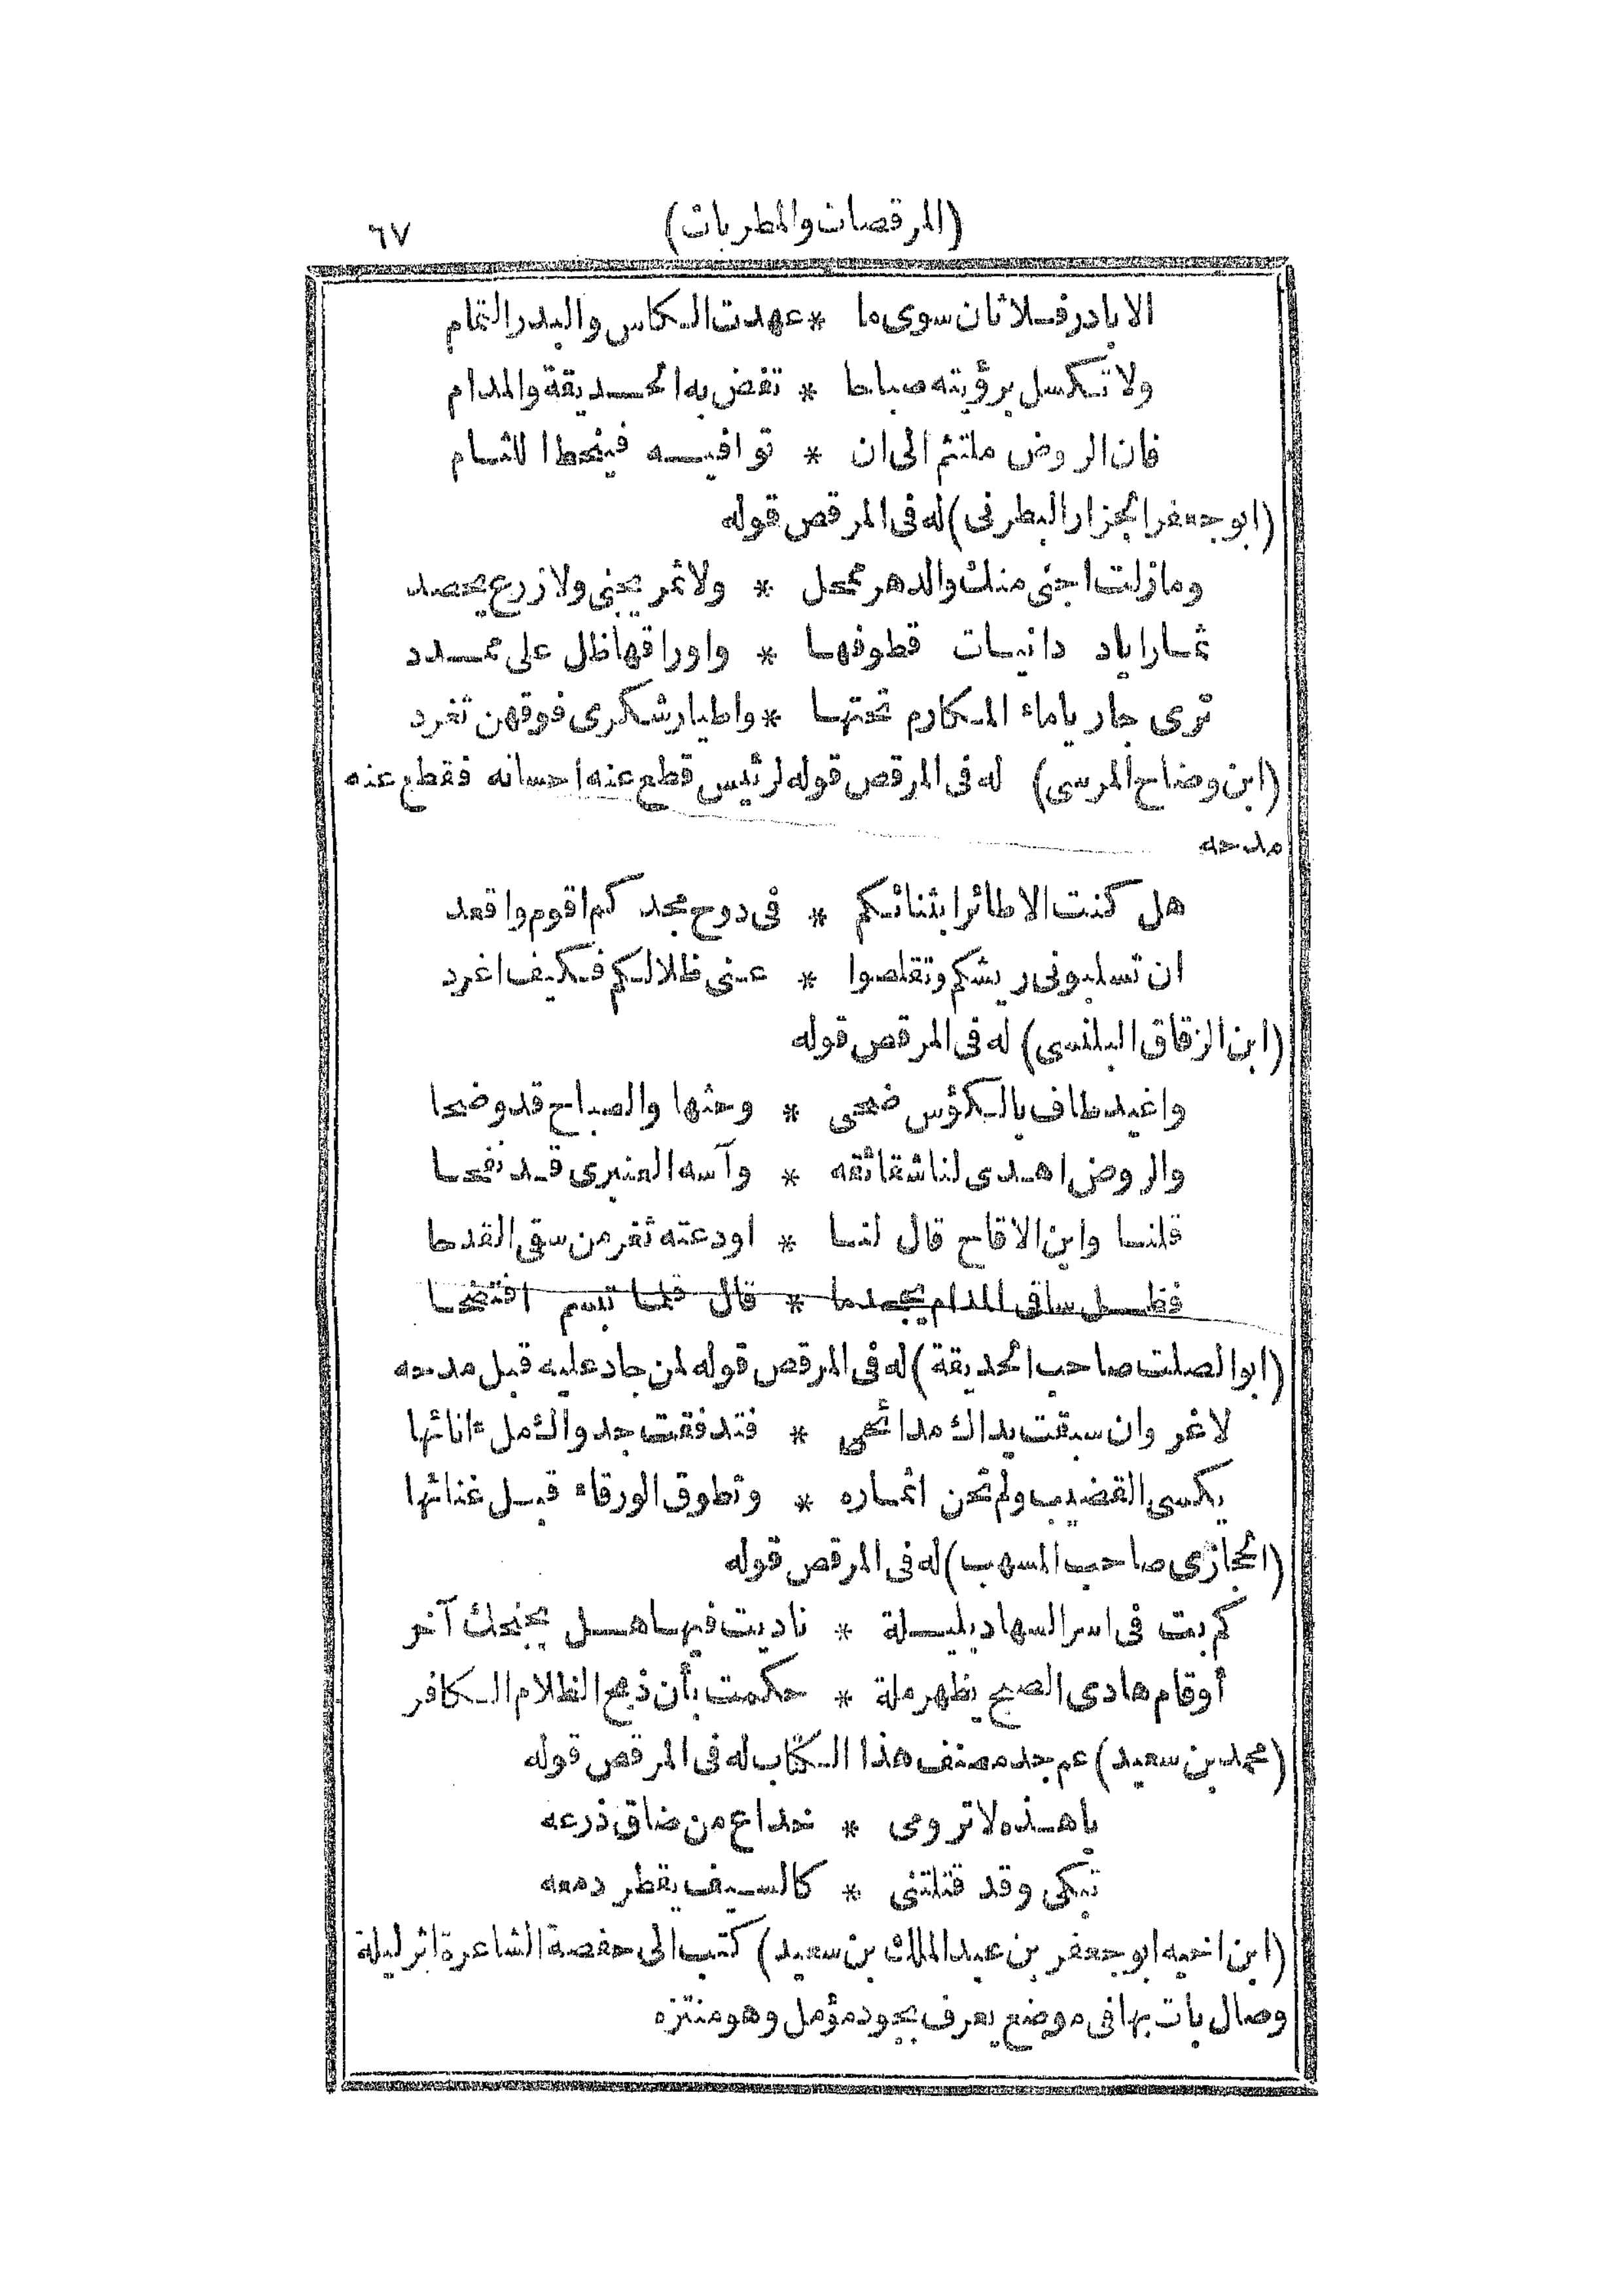 (المرقصات والمطربات) ٦٧
الا بادر فلا ثان سوى ما * عهدت الكاس والبدر التمام
ولا تكسل برؤيته ضبابا * تغض به الحديقة والمدام
فان الروض ملتثم الى ان * توافيه فينحط اللثام
(ابو جعفر الجزار البطرنى) له فى المرقص قوله
وما زلت اجنى منك والدهر ممحل * ولا ثمر يجنى ولا زرع يحصد
ثمار اياد دانيات قطوفها * واوراقها ظل على ممدد
ترى جاريا ماء المكارم تحتها * واطيار شكرى فوقهن تغرد
(ابن وضاح المرسى) له فى المرقص قوله لرئيس قطع عنه احسانه فقطع عنه
مدحه
هل كنت الا طائرا بثنائكم * فى دوح مجدكم اقوم واقعد
ان تسلبونى ريشكم وتقلصوا * عنى ظلالكم فكيف اغرد
(ابن الزقاق البلنسى) له فى المرقص قوله
واغيد طاف بالكؤس ضحى * وحثها والصباح قد وضحا
والروض اهدى لنا شقائقه * وآسه العنبرى قد نفحا
قلنا واين الاقاح قال لنا * اودعته ثغر من سقى القدحا
فظل ساقى المدام يجحد ما * قال فلما تبسم افتضحا
(ابو الصلت صاحب الحديقة) له فى المرقص قوله لمن جاد عليه قبل مدحه
لا غرو ان سبقت يداك مدائحى * فتدفقت جدواك ملء انائها
يكسى القضيب ولم تحن اثماره * وتطوق الورقاء قبل غنائها
(الحجازى صاحب المسهب) له فى المرقص قوله
كم بت فى اسر السهاد بليلة * ناديت فيها هل لجنحك آخر
أو قام هادى الصبح يظهر ملة * حكمت بأن ذبح الظلام الكافر
(محمد بن سعيد) عم جد مصنف هذا الكتاب له فى المرقص قوله
يا هذه لا ترومى * خداع من ضاق ذرعه
تبكى وقد قتلتنى * كالسيف يقطر دمعه
(ابن اخيه ابو جعفر بن عبد الملك بن سعيد) كتب الى حفصة الشاعرة اثر ليلة
وصال بات بها فى موضع يعرف بجود مؤمل وهو منتزه